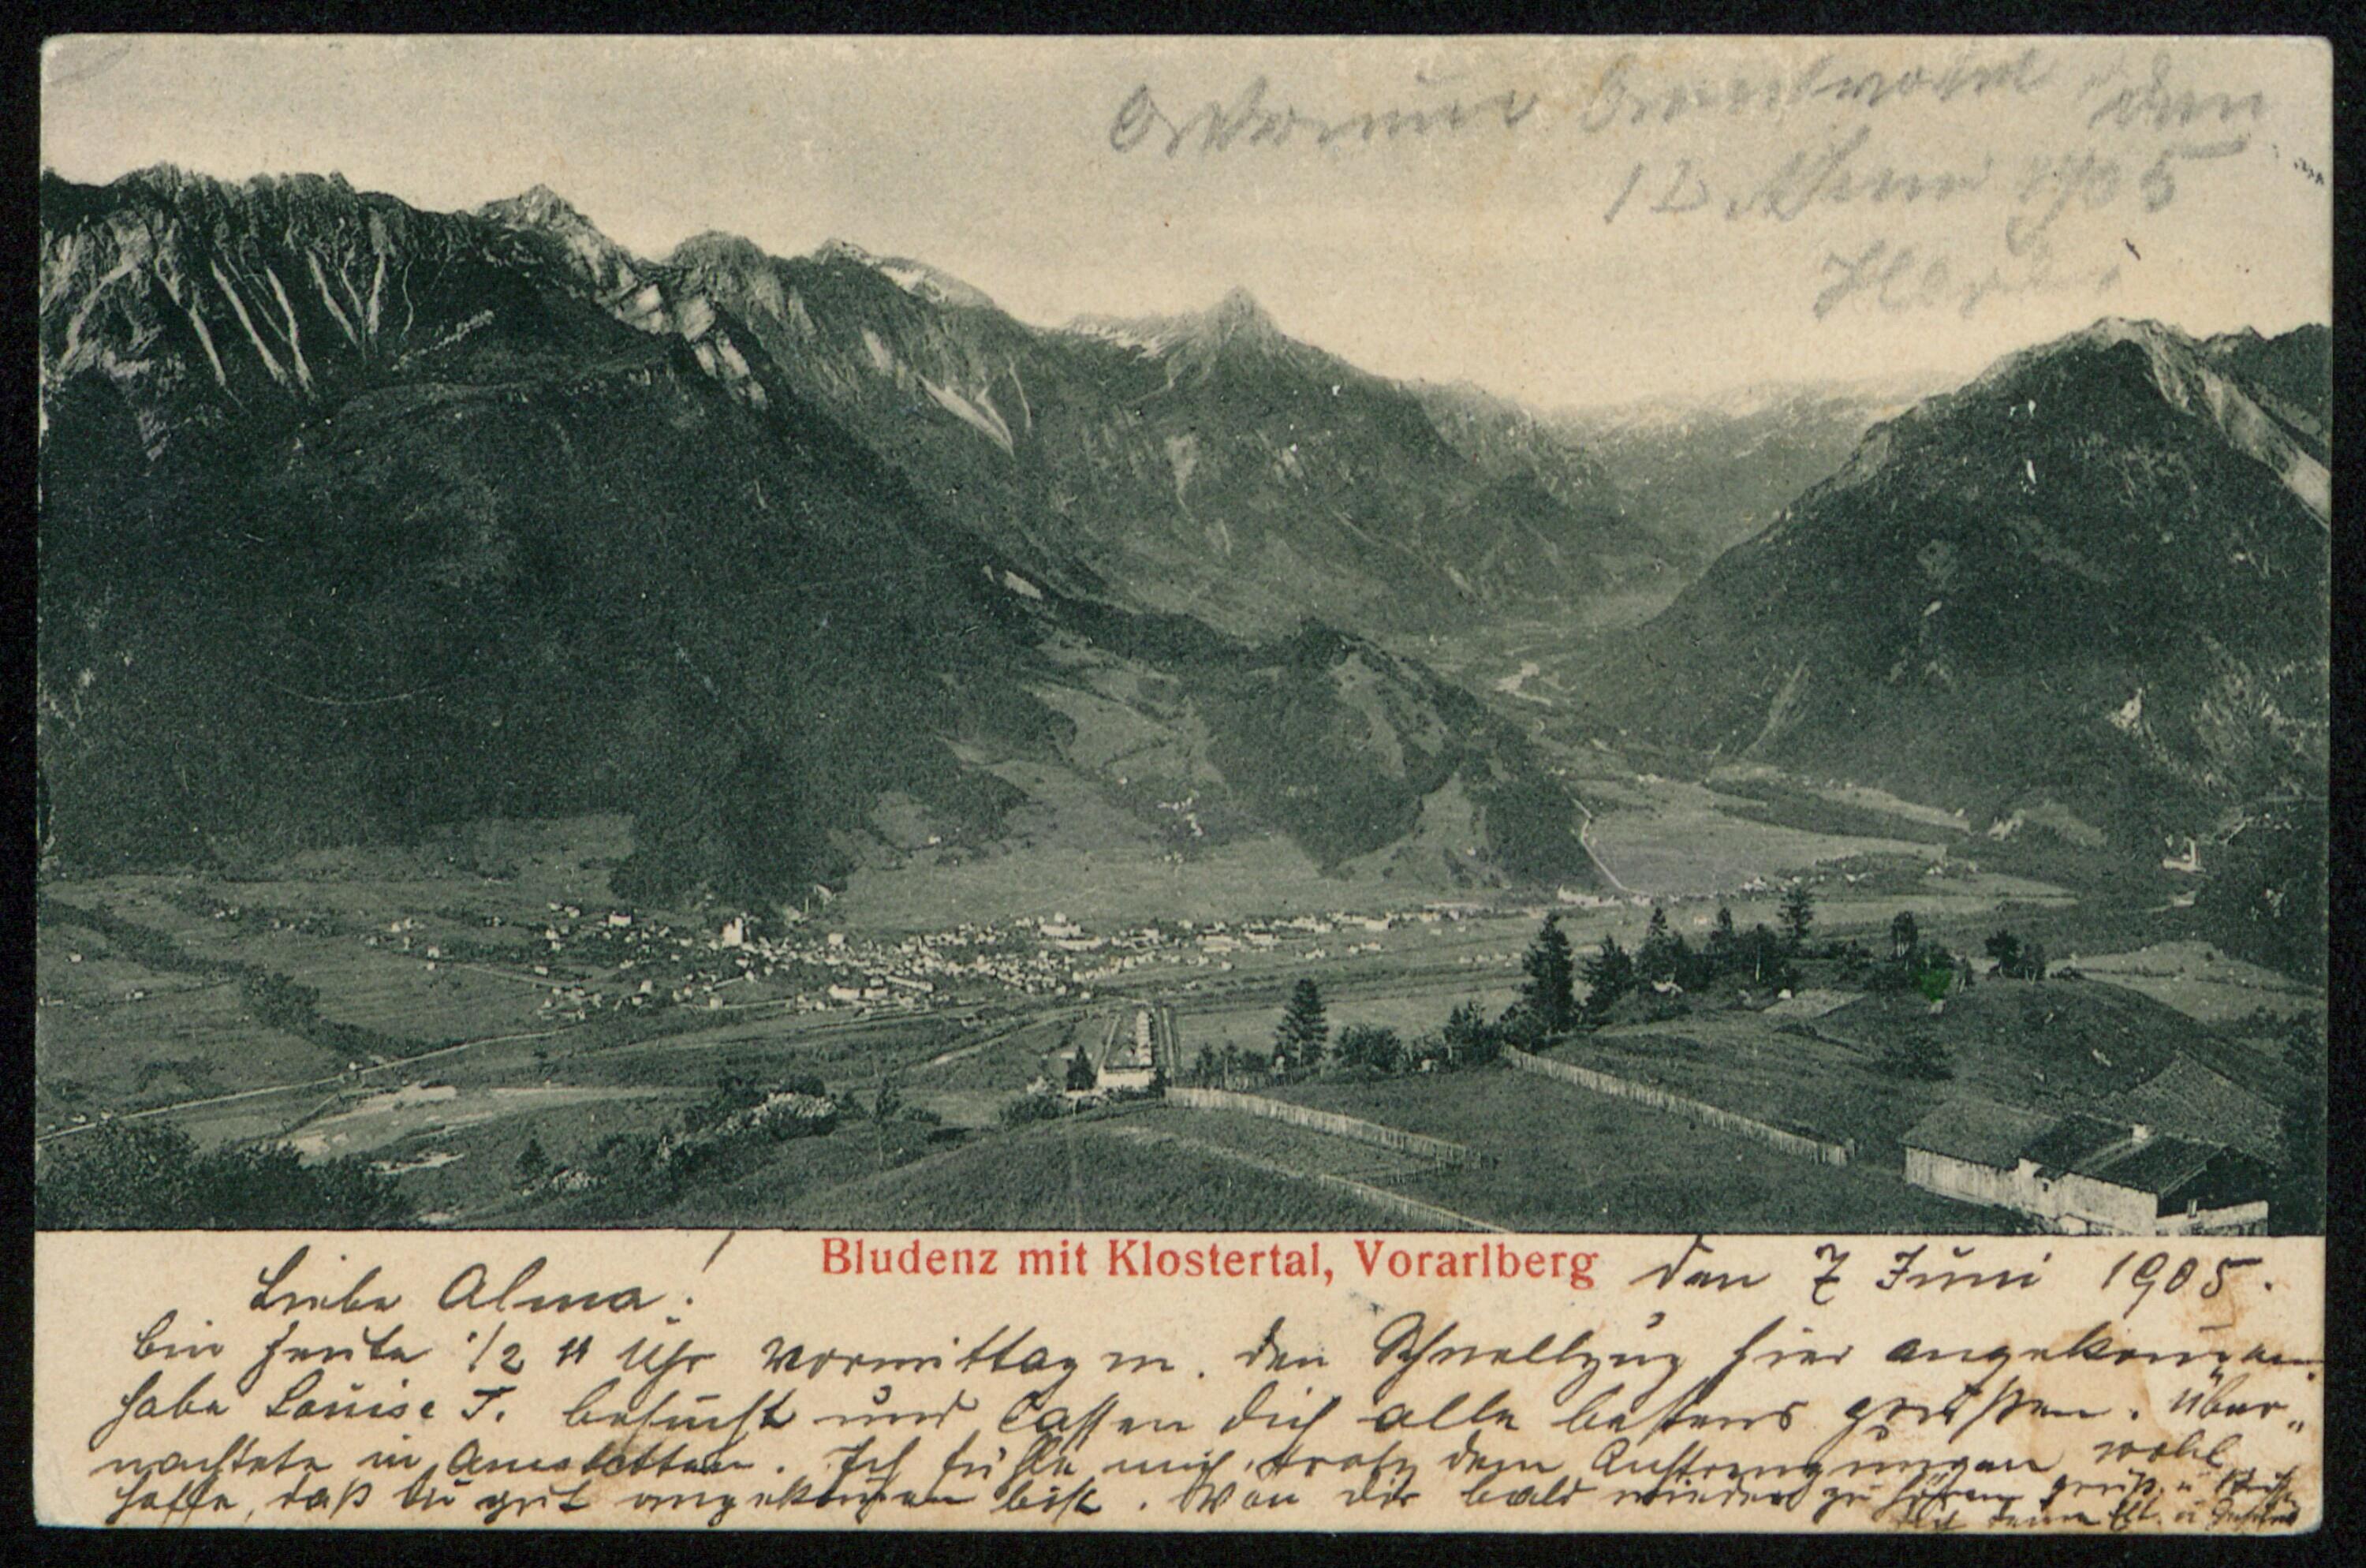 den
12. Juni 1905
Bludenz mit Klostertal, Vorarlberg
den 7 Juni 1905.
Liebe Alma!
bin heute 1/2 11 Uhr vormittag m. den Schnellzug hier angekommen.
habe Louise T. besucht und lassen dich alle bestens grüßen. Über„
nachtete in Amstetten. Ich fühle mich trotz dem Anstrengungen wohl
hoffe, daß du gut angekommen bist. Von dir bald wieder zu hören grüß. u